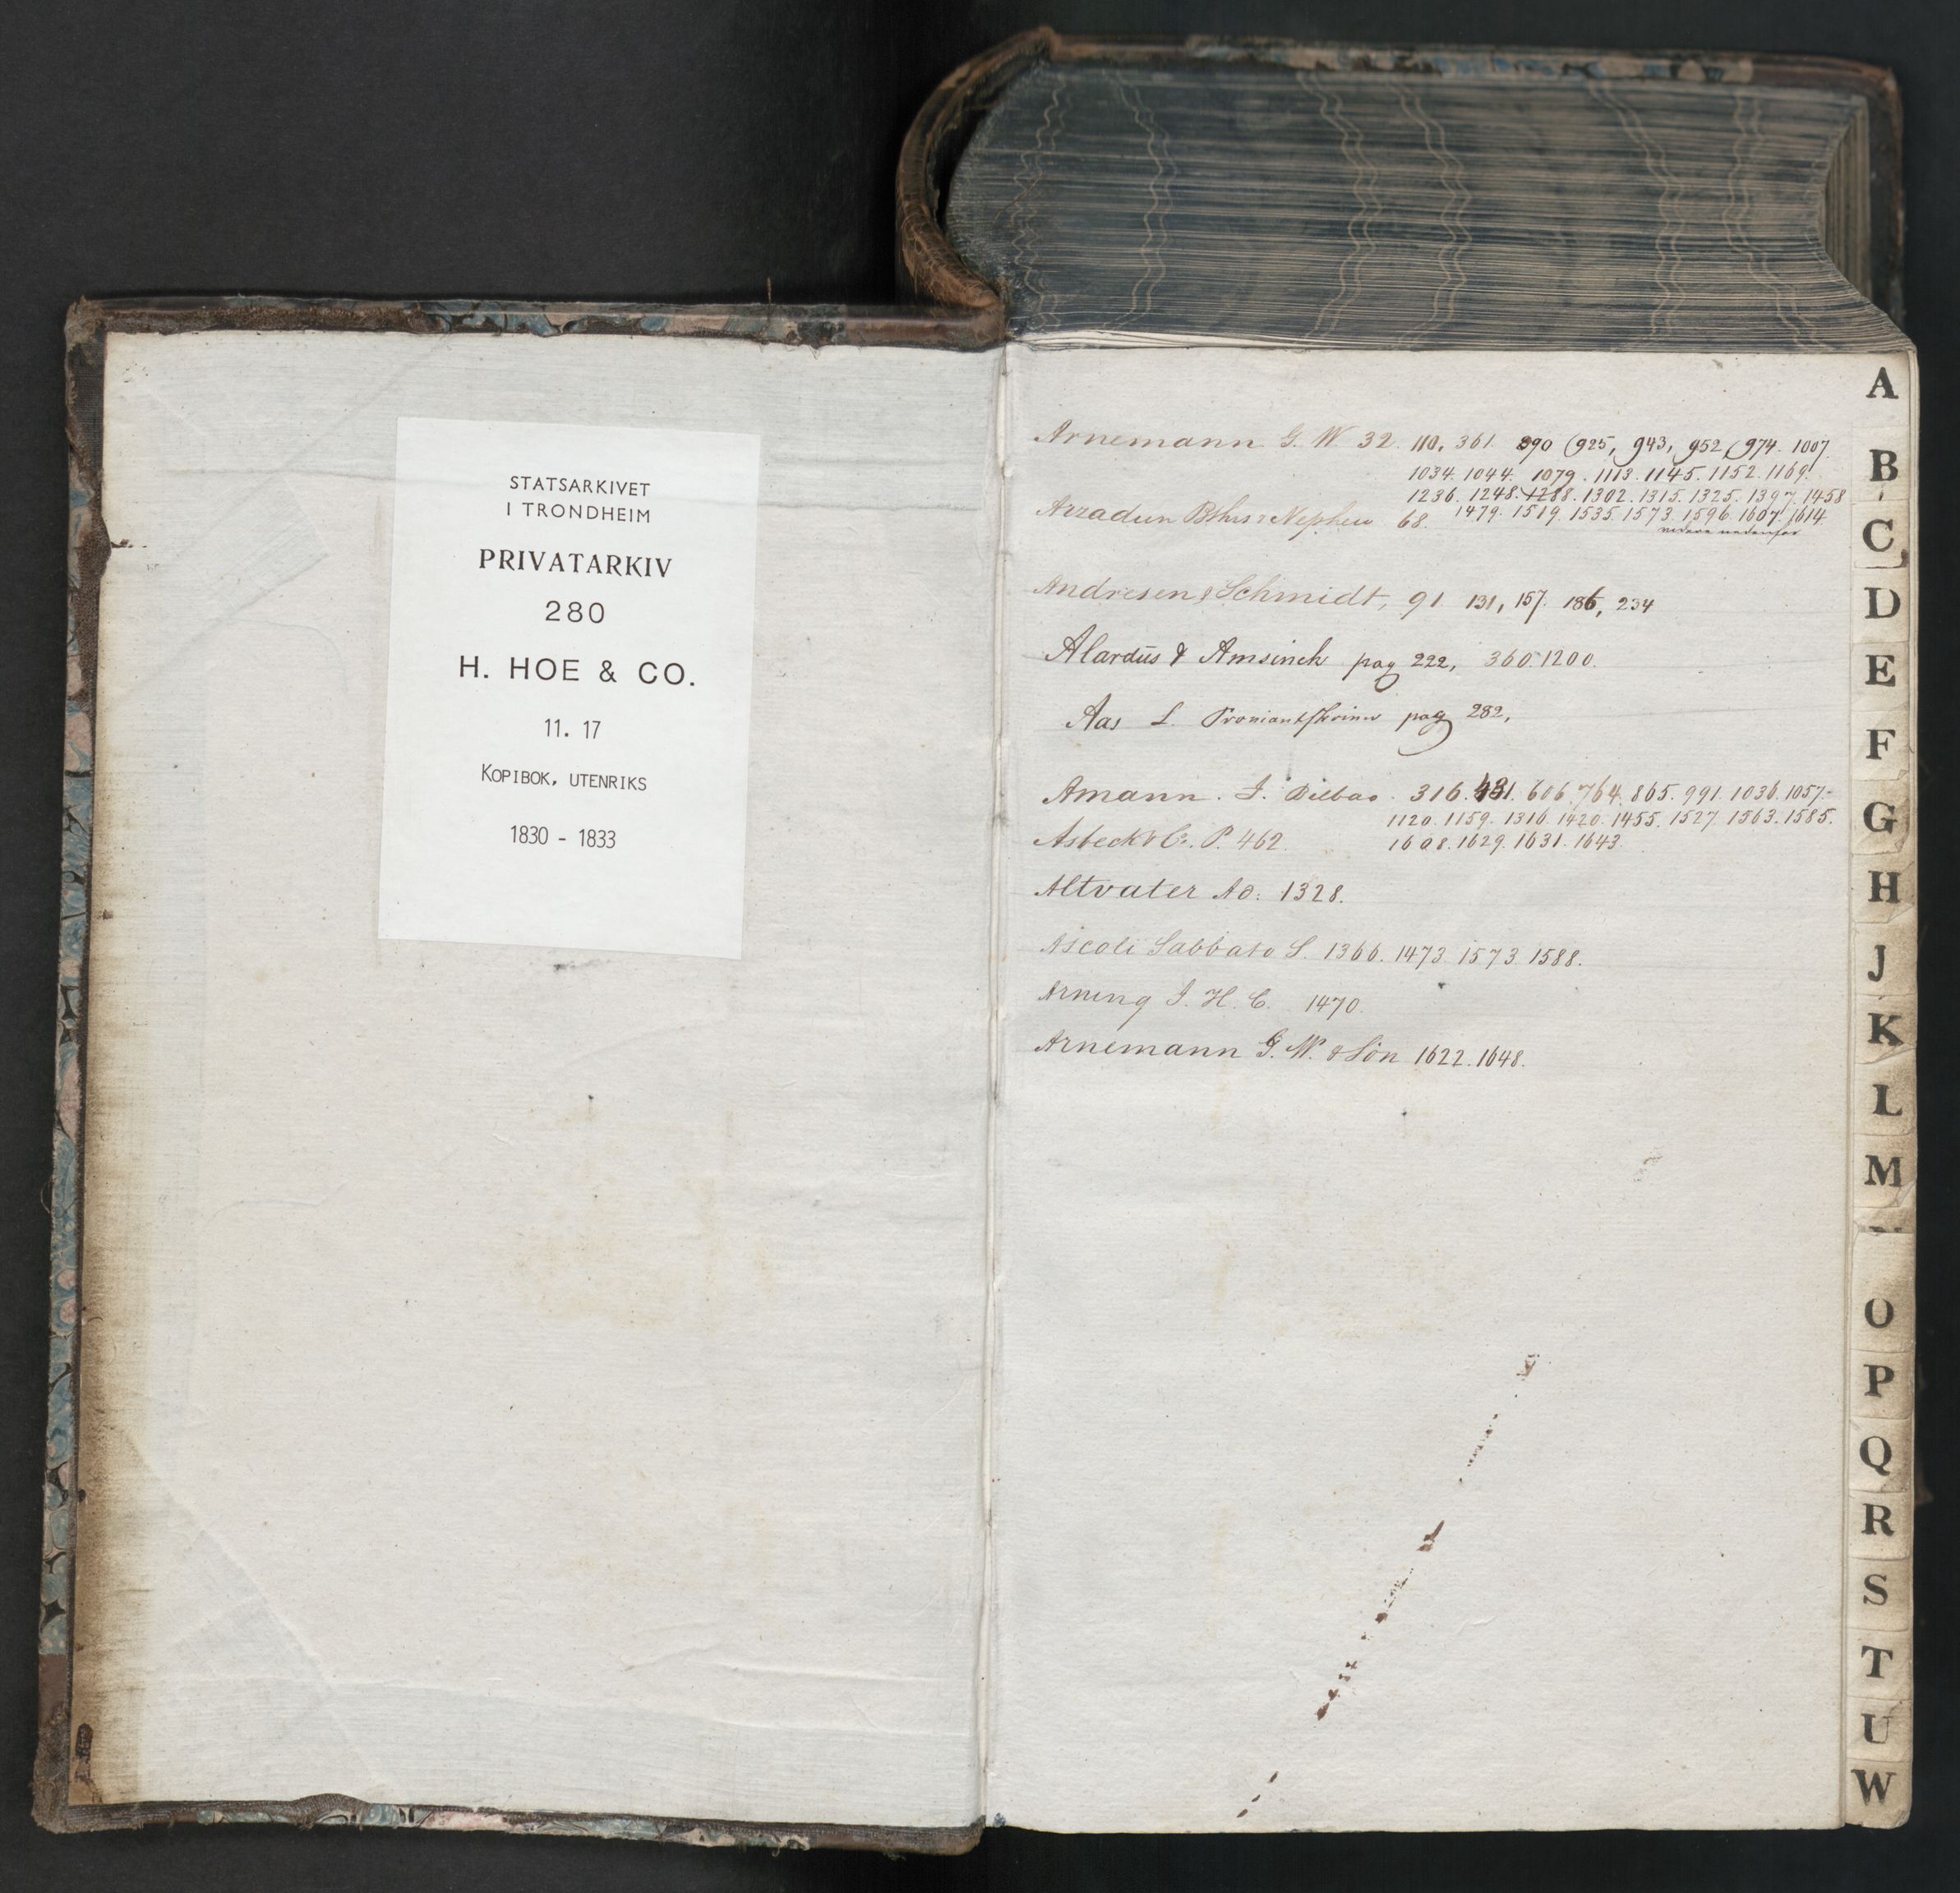 STATSARKIVET
I TRONDHEIM
PRIVATARKIV
280
H. HOE & CO.
11. 17
KOPIBOK, UTENRIKS
1830 - 1833
Arnemann G. W. 32. 110, 361. 890 925, 943, 952, 974. 1007.
1034. 1044. 1079. 1113. 1145. 1152. 1169.
1236. 1248. 1288. 1302. 1315. 1325. 1397. 1458
1479. 1519. 1535. 1573. 1596. 1607. 1614.
Nephew 68.
videre nedenfor
Andresen & Schmidt, 91. 131, 157. 186, 234
Alardus & Amsinck pag 222, 360. 1200.
Aas L. pag 282,
Amann. J. Bilbao. 316. 431. 606. 764. 865. 991. 1036. 1057.
1120. 1159. 1316. 1420. 1455. 1527. 1563. 1585.
1608. 1629. 1631. 1643.
Asbeck & Co. P. 462
Altvater Ad. 1328.
Ascoli Sabbato S. 1366. 1473. 1573. 1588.
Arning J. H. C. 1470.
Arnemann G. W. & Sön 1622. 1648.
A
B
C
D
E
F
G
H
J
K
L
M
O
P
Q
R
S
T
U
W